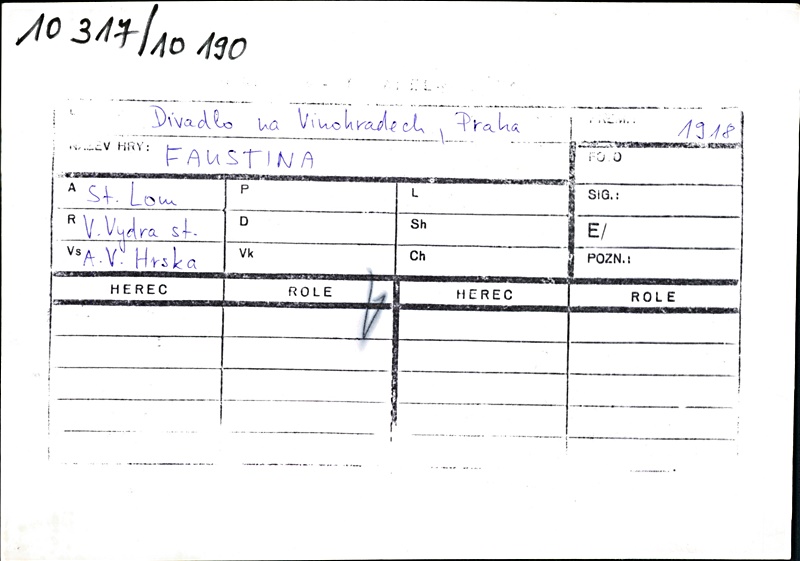 10 317/10 190
Divadlo na Vinohradech, Praha
1918
NÁZEV HRY: FAUSTINA
FOTO
A St. Lom P L SIG.:
R V. Vydra st. D Sh E/
Vs A. V. Hrska Vk Ch POZN.:
HEREC ROLE HEREC ROLE